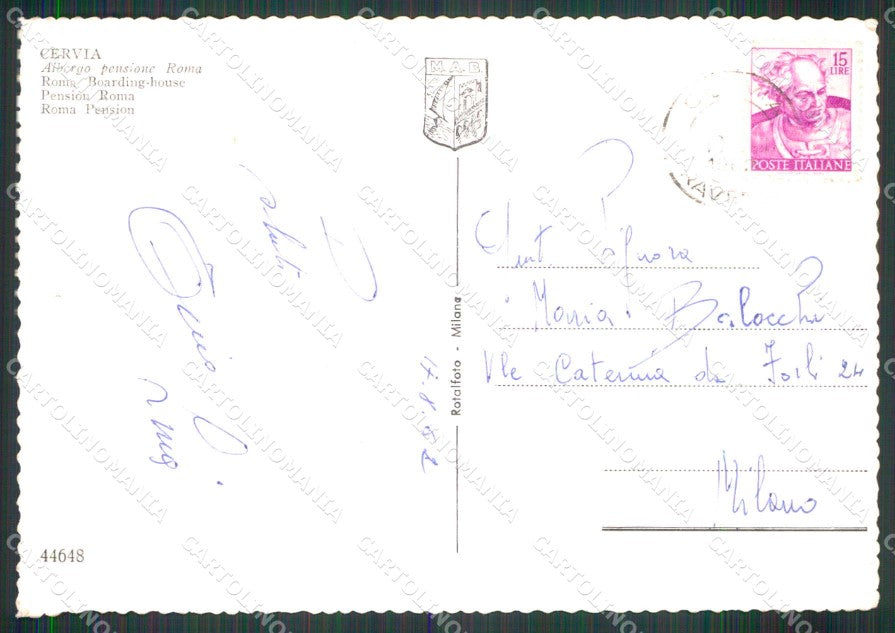 CERVIA
Albergo pensione Roma
Roma Boarding-house
Pension Roma
Roma Pension
M.A.B
15
LIRE
POSTE ITALIANE
saluti
Signora
Maria Balocchi
Vle Caterina da Forlì 24
Milano
Rotalfoto - Milano
44648
CARTOLINOMANIA